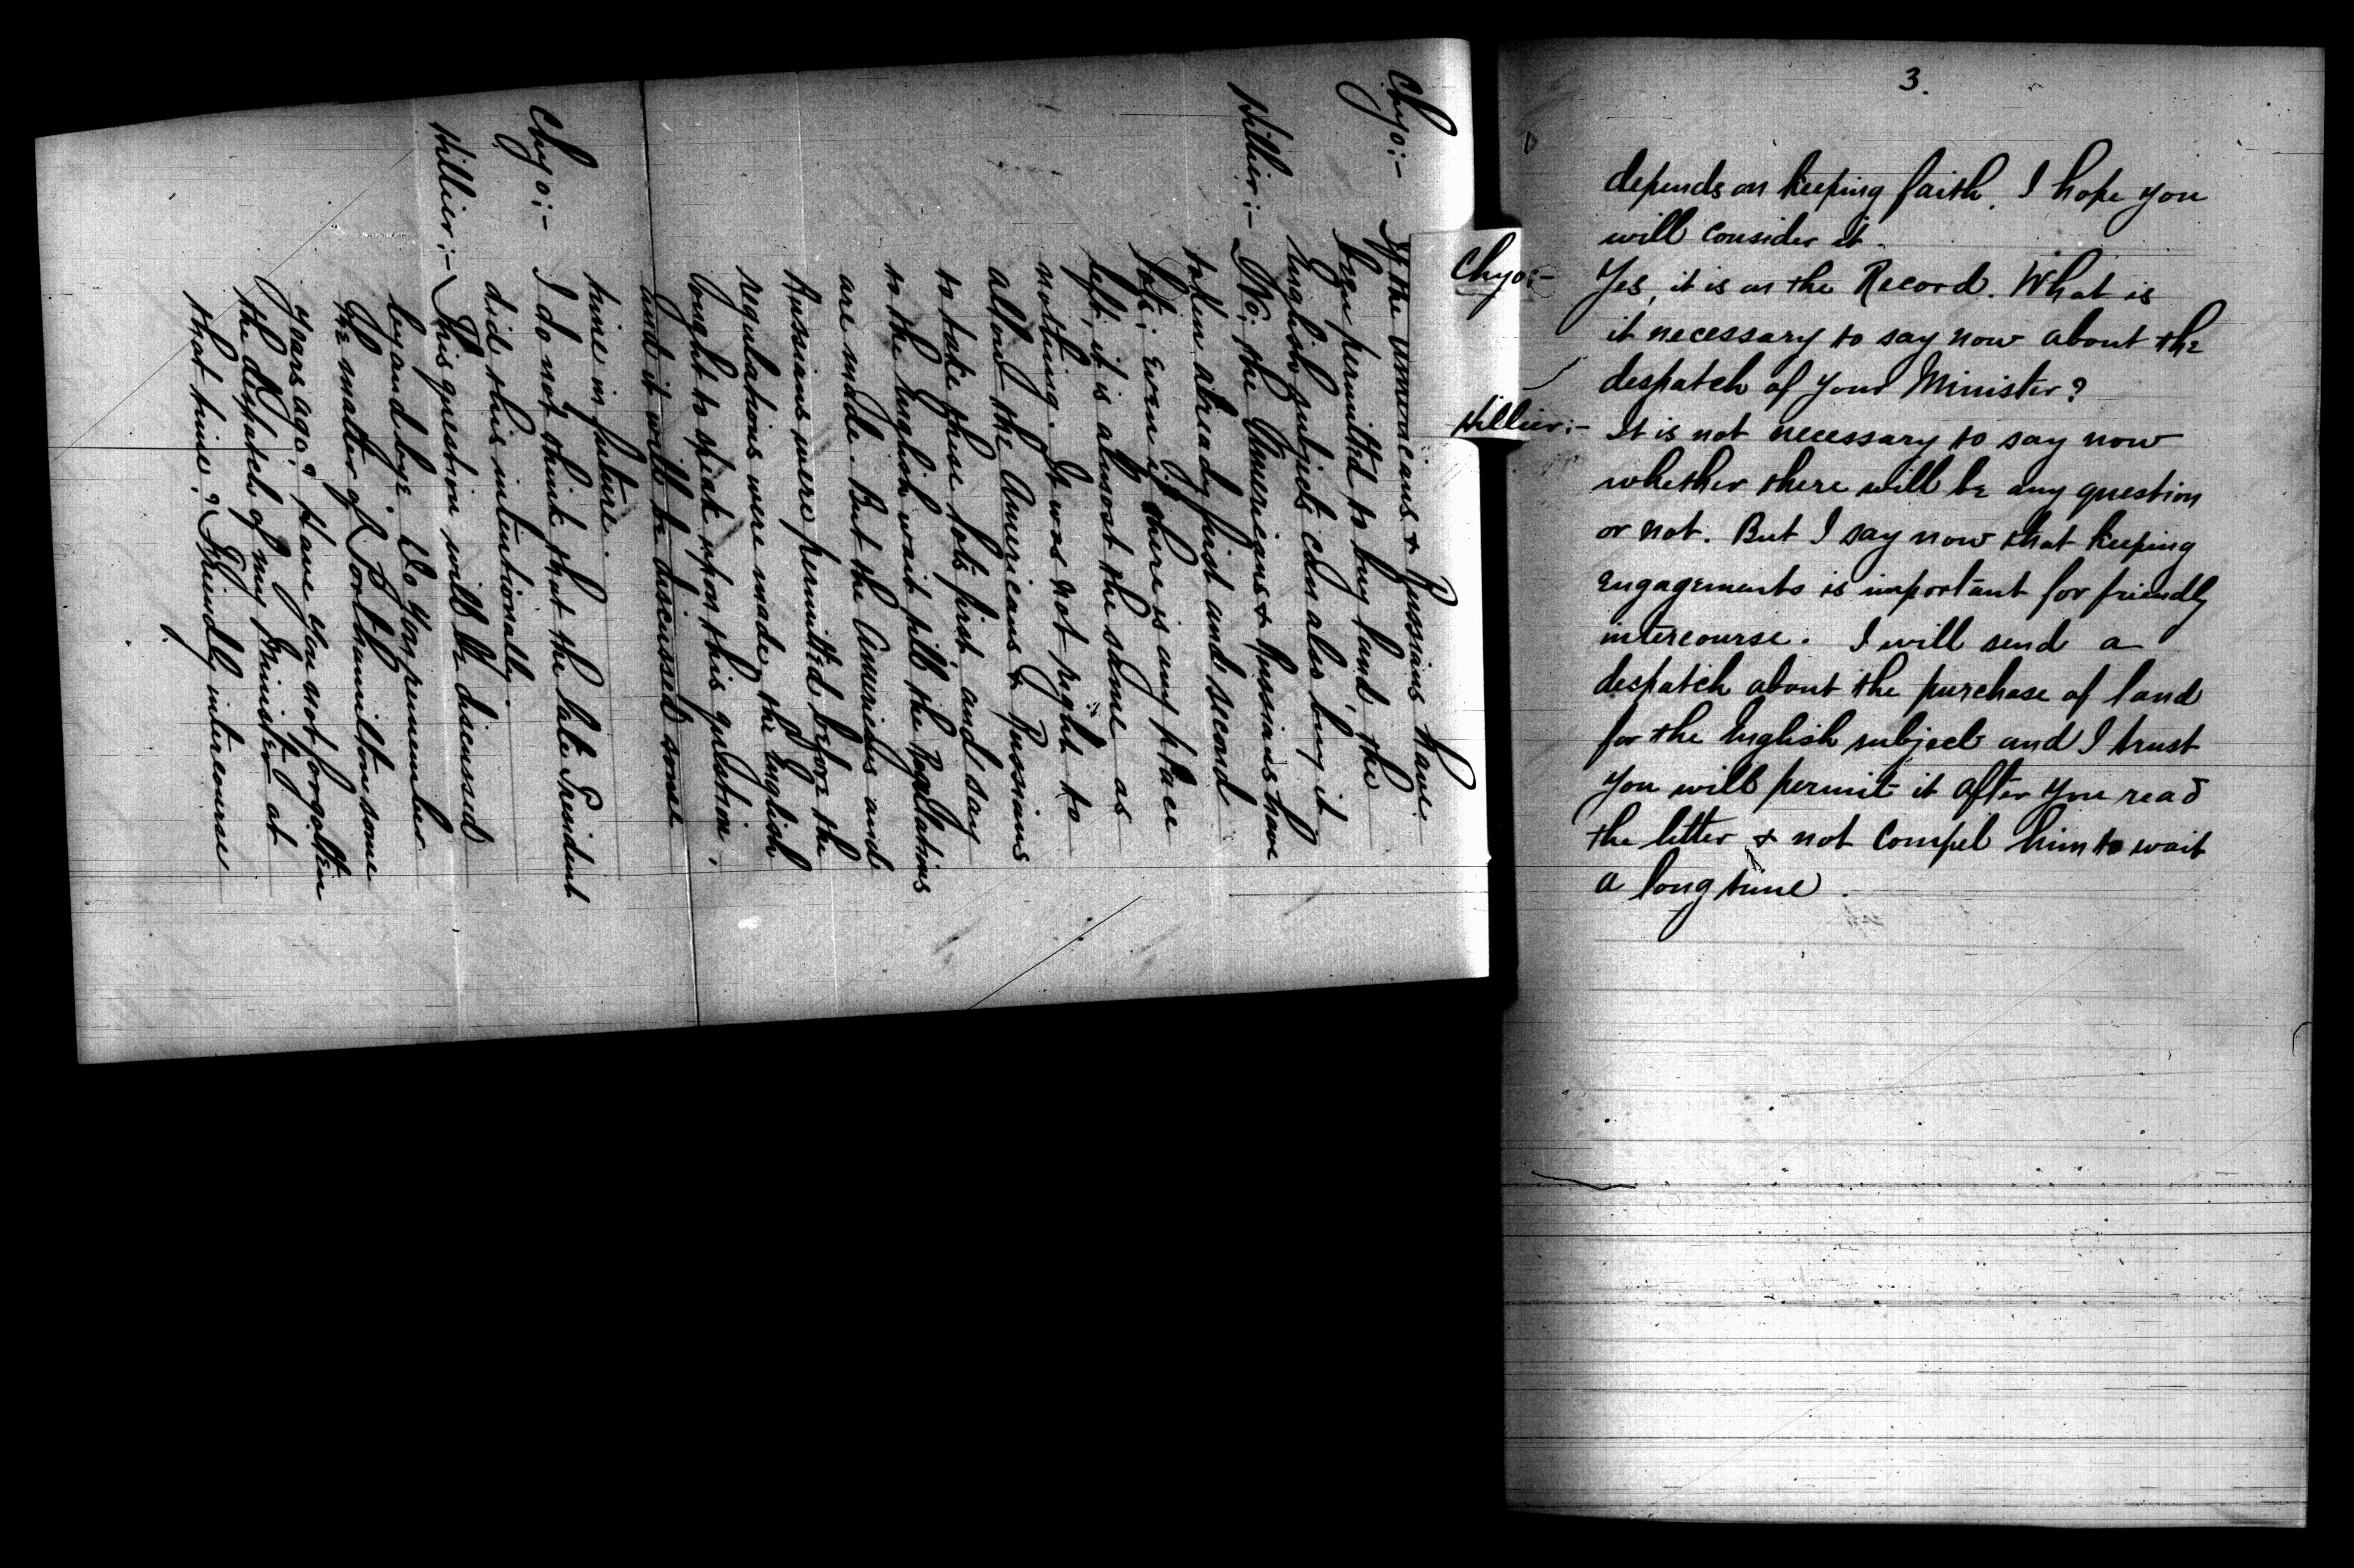 Chyo:- If the Americans & Russians have
been permitted to buy land, the
English subjects can also buy it
Hillier:- No; the Americans & Russians have
taken already first and second
lots; even if there is any place
left, it is almost the same as
nothing. It was not right to
allow the Americans & Russians
to take these lots first, and say
to the English wait till the Regulations
are made. But the Americans and
Russians were permitted before the
regulations were made, the English
ought to speak upon this question,
and it will be discussed some
time in future.
Chyo:- I do not think that the late President
did this intentionally.
Hillier:- This question will be discussed
by and bye. Do you remember
the matter of Port Hamilton some
years ago? Have you not forgotten
the despatch of my Minister at
that time? Friendly intercourse
3.
depends on keeping faith. I hope you
will consider it.
Chyo:- Yes, it is on the Record. What is
it necessary to say now about the
despatch of your Minister?
Hillier:- It is not necessary to say now
whether there will be any question
or not. But I say now that keeping
engagements is important for friendly
intercourse. I will send a
despatch about the purchase of land
for the English subject and I trust
you will permit it after you read
the letter & not compel him to wait
a long time.